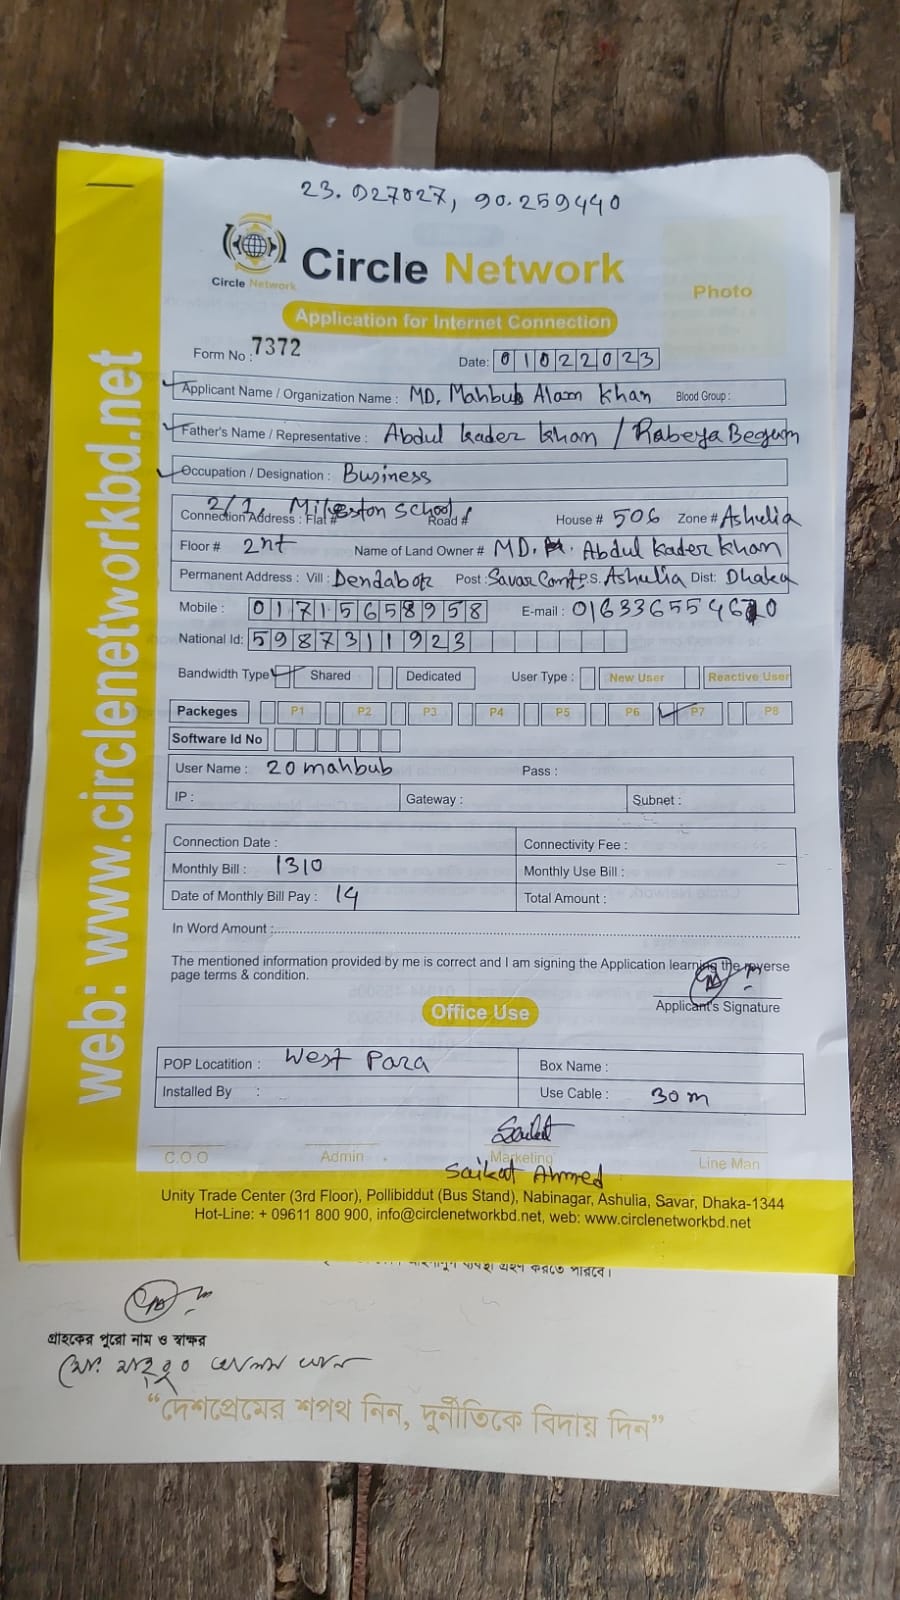 23.027027, 90.259440
Circle Network
Circle Network
Photo
Application for Internet Connection
Form No : 7372
Date: 01022023
Applicant Name / Organization Name : MD. Mahbub Alam Khan Blood Group :
Father's Name / Representative : Abdul Kader Khan / Rabeya Begum
Occupation / Designation : Business
2/1, Mileston School
Connection Address : Flat # Road # House # 506 Zone # Ashulia
Floor # 2nt Name of Land Owner # MD. Abdul Kader Khan
Permanent Address : Vill : Dendabor Post : Savar Cant P.S. Ashulia Dist: Dhaka
Mobile : 01715658958 E-mail :
National Id: 5987311923
Bandwidth Type Shared Dedicated User Type : New User Reactive User
Packeges P1 P2 P3 P4 P5 P6 P7 P8
Software Id No
User Name : 20mahbub Pass :
IP : Gateway : Subnet :
Connection Date : Connectivity Fee :
Monthly Bill : 1310 Monthly Use Bill :
Date of Monthly Bill Pay : 14 Total Amount :
In Word Amount :
The mentioned information provided by me is correct and I am signing the Application learning the reverse
page terms & condition.
Applicant's Signature
Office Use
POP Locatition : West Para Box Name :
Installed By : Use Cable : 30m
C.O.O Admin Marketing Line Man
Saikat Ahmed
Unity Trade Center (3rd Floor), Pollibiddut (Bus Stand), Nabinagar, Ashulia, Savar, Dhaka-1344
Hot-Line: + 09611 800 900, info@circlenetworkbd.net, web: www.circlenetworkbd.net
web: www.circlenetworkbd.net
গ্রহণ করতে পারবে।
গ্রাহকের পুরো নাম ও স্বাক্ষর
মো: মাহবুব আলম খান
“দেশপ্রেমের শপথ নিন, দুর্নীতিকে বিদায় দিন”